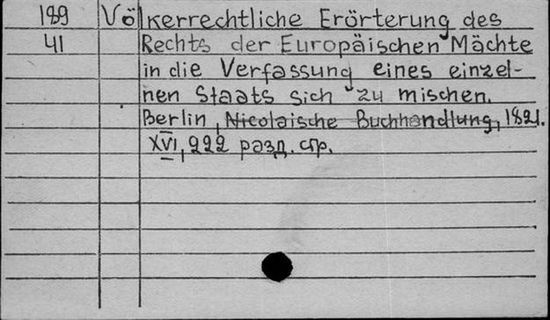 189 Völkerrechtliche Erörterung des
41 Rechts der Europäischen Mächte
in die Verfassung eines einzel-
nen Staats sich zu mischen.
Berlin, Nicolaische Buchhandlung, 1821.
XVI, 222 разд. стр.